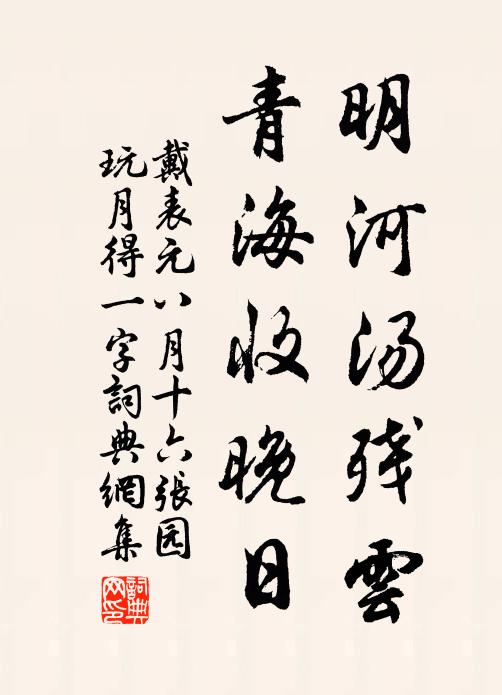 明河汤残雲
青海收晚日
戴表元八月十六張园
玩月得一字詞典網集
詞典